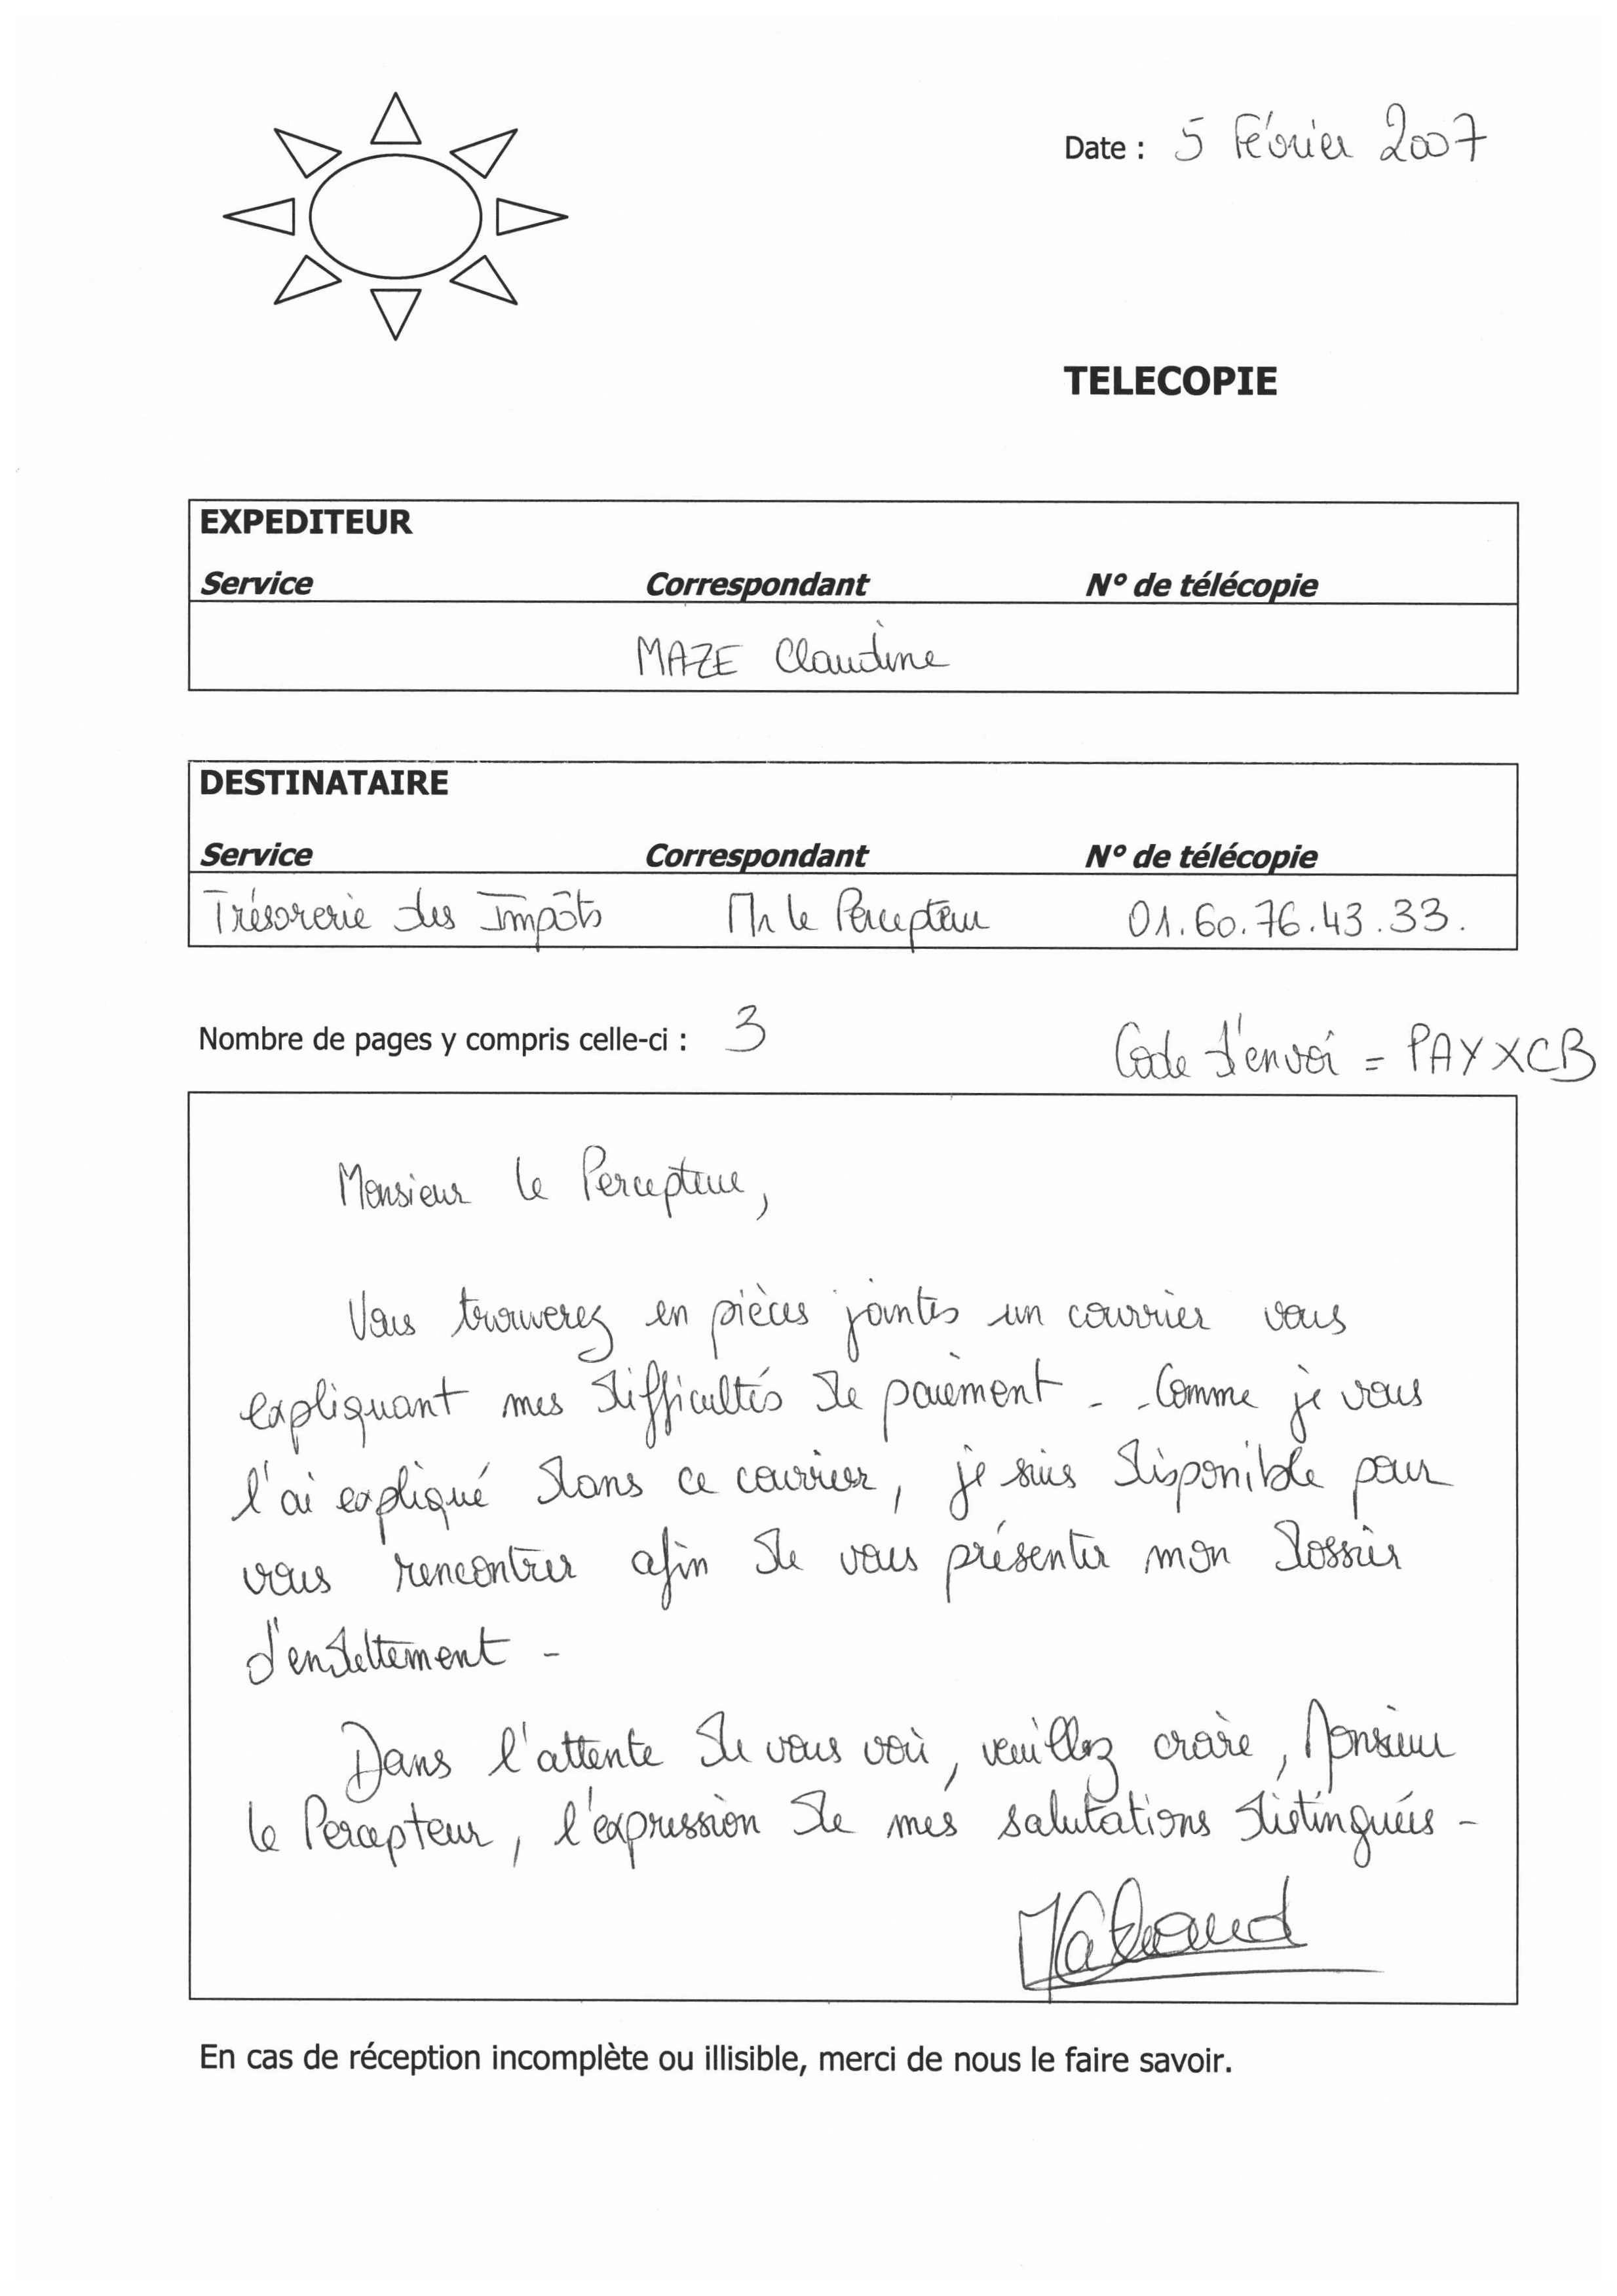 Date : 5 Février 2007
TELECOPIE
EXPEDITEUR
Service Correspondant N° de télécopie
MAZE Claudine
DESTINATAIRE
Service Correspondant N° de télécopie
Trésorerie des Impôts Mr le Percepteur 01.60.76.43.33.
Nombre de pages y compris celle-ci : 3
Code d'envoi = PAYXCB
Monsieur le Percepteur,
Vous trouverez en pièces jointes un courrier vous
expliquant mes difficultés de paiement - Comme je vous
l'ai expliqué dans ce courrier, je suis disponible pour
vous rencontrer afin de vous présenter mon dossier
d'endettement -
Dans l'attente de vous voir, veuillez croire, Monsieur
le Percepteur, l'expression de mes salutations distinguées -
En cas de réception incomplète ou illisible, merci de nous le faire savoir.